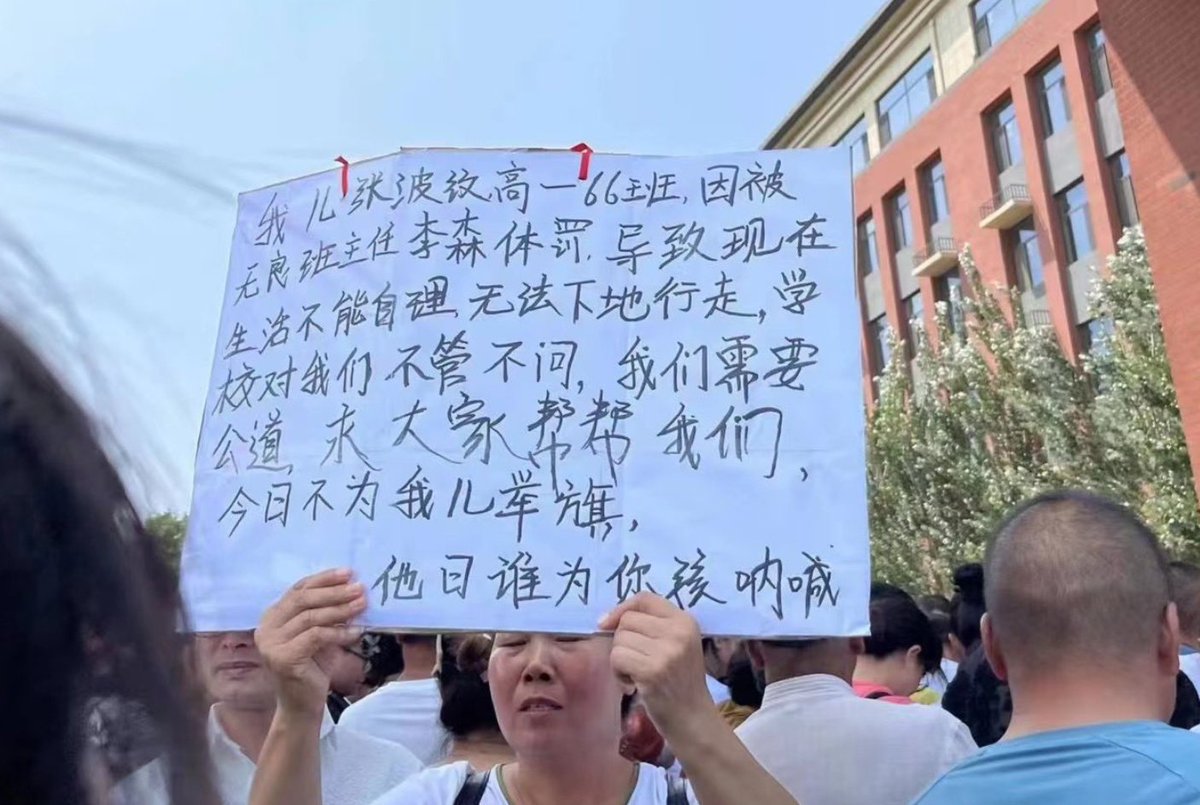 我儿张波纹高一66班,因被
无良班主任李森体罚,导致现在
生活不能自理,无法下地行走,学
校对我们不管不问,我们需要
公道,求大家帮帮我们,
今日不为我儿举旗,
他日谁为你孩呐喊